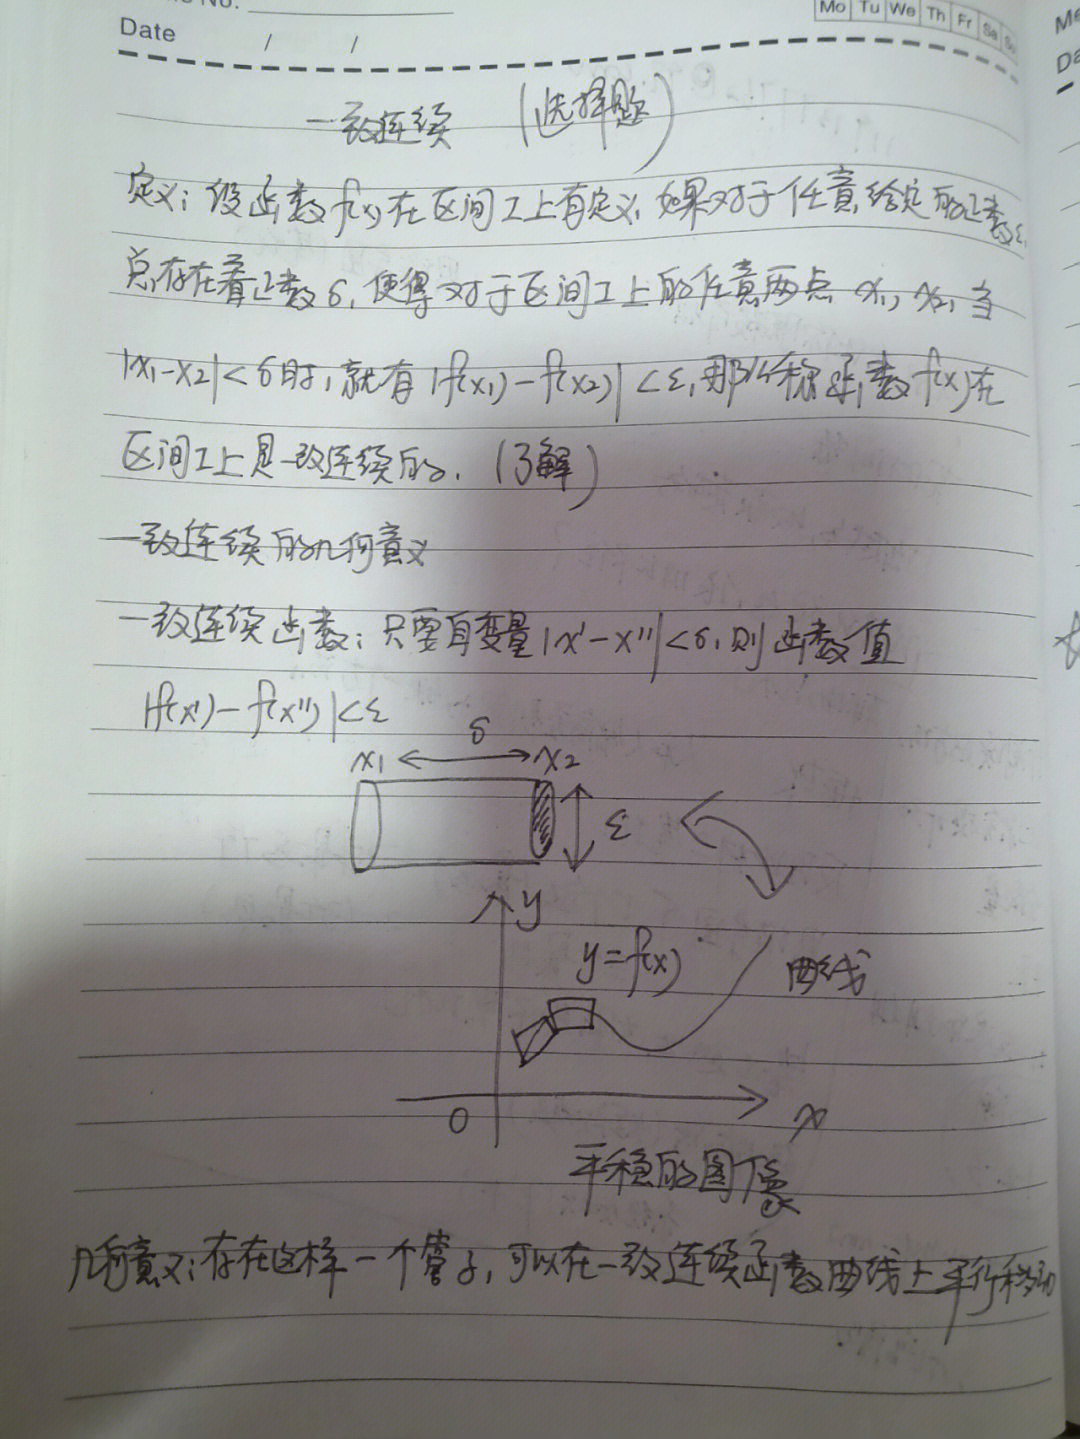 No.
Date / /
Mo Tu We Th Fr Sa Su
一致连续 (选择题)
定义:设函数f(x)在区间I上有定义,如果对于任意给定的正数ε,
总存在着正数δ,使得对于区间I上的任意两点 x1,x2,当
|x1-x2|<δ时,就有|f(x1)-f(x2)|<ε,那么称函数f(x)在
区间I上是一致连续的.(了解)
一致连续的几何意义
一致连续函数:只要自变量|x'-x''|<δ,则函数值
|f(x')-f(x'')|<ε
x1 δ x2
ε
y
y=f(x) 曲线
0 x
平稳的图像
几何意义:存在这样一个管子,可以在一致连续函数曲线上平行移动
Me
Da